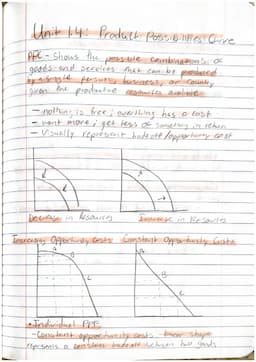 Unit 1.4: Product Possibilities Curve
PPC - Shows the possible combinations of
goods and services that can be produced
by a single person, business, or country
given the productive resources available
- nothing is free; everything has a cost
- want more; get less of something in return
- Visually represent tradeoff/opportunity cost
Decrease in Resources
Increase in Resources
Increasing Opportunity Costs
Constant Opportunity Costs
A
B
C
A
B
C
• Individual PPC
- Constant opportunity costs - linear shape
represents a constant tradeoff between two goods